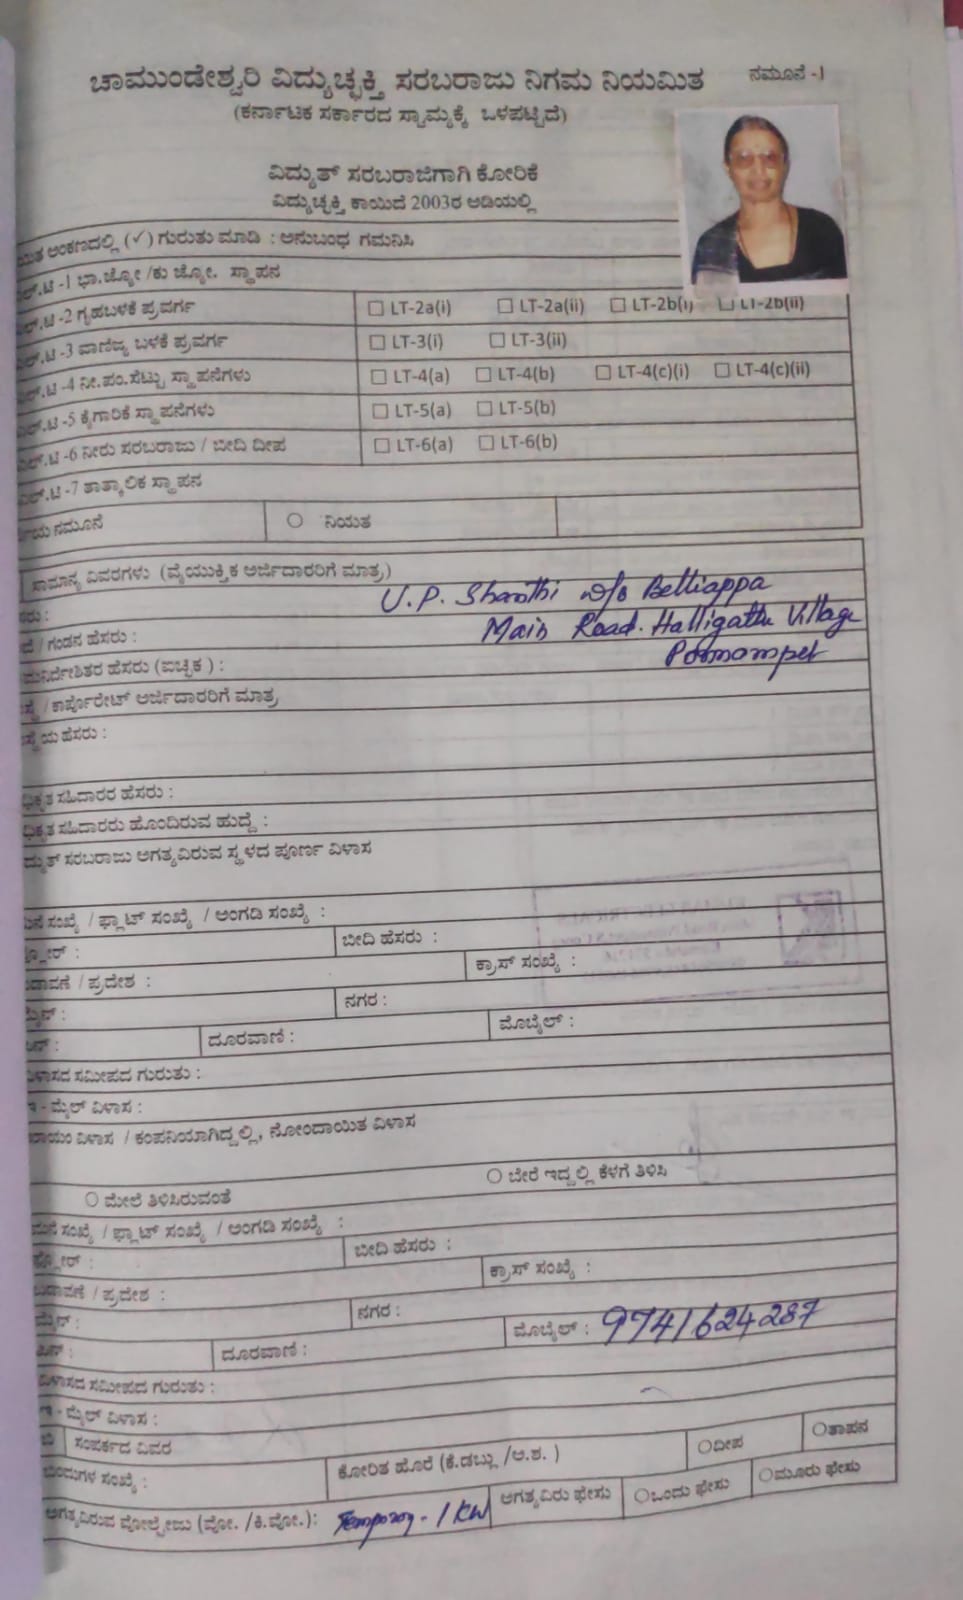 ನಮೂನೆ -I
ಚಾಮುಂಡೇಶ್ವರಿ ವಿದ್ಯುಚ್ಛಕ್ತಿ ಸರಬರಾಜು ನಿಗಮ ನಿಯಮಿತ
(ಕರ್ನಾಟಕ ಸರ್ಕಾರದ ಸ್ವಾಮ್ಯಕ್ಕೆ ಒಳಪಟ್ಟಿದೆ)
ವಿದ್ಯುತ್ ಸರಬರಾಜಿಗಾಗಿ ಕೋರಿಕೆ
ವಿದ್ಯುಚ್ಛಕ್ತಿ ಕಾಯಿದೆ 2003ರ ಅಡಿಯಲ್ಲಿ
ಅಂಕಣದಲ್ಲಿ (✓) ಗುರುತು ಮಾಡಿ : ಅನುಬಂಧ ಗಮನಿಸಿ
-1 ಭಾ.ಜ್ಯೋ /ಕು ಜ್ಯೋ. ಸ್ಥಾಪನ
-2 ಗೃಹಬಳಕೆ ಪ್ರವರ್ಗ ☐ LT-2a(i) ☐ LT-2a(ii) ☐ LT-2b(i) ☐ LT-2b(ii)
-3 ವಾಣಿಜ್ಯ ಬಳಕೆ ಪ್ರವರ್ಗ ☐ LT-3(i) ☐ LT-3(ii)
-4 ನೀ.ಪಂ.ಸೆಟ್ಟು ಸ್ಥಾಪನೆಗಳು ☐ LT-4(a) ☐ LT-4(b) ☐ LT-4(c)(i) ☐ LT-4(c)(ii)
-5 ಕೈಗಾರಿಕೆ ಸ್ಥಾಪನೆಗಳು ☐ LT-5(a) ☐ LT-5(b)
-6 ನೀರು ಸರಬರಾಜು / ಬೀದಿ ದೀಪ ☐ LT-6(a) ☐ LT-6(b)
-7 ತಾತ್ಕಾಲಿಕ ಸ್ಥಾಪನ
ನಮೂನೆ ○ ನಿಯತ
ಸಾಮಾನ್ಯ ವಿವರಗಳು (ವೈಯುಕ್ತಿಕ ಅರ್ಜಿದಾರರಿಗೆ ಮಾತ್ರ)
U.P. Shanthi w/o Belliappa
/ ಗಂಡನ ಹೆಸರು : Main Road. Halligattu Village
ಹೆಸರು (ಐಚ್ಛಿಕ ) : Ponnampet
/ಕಾರ್ಪೊರೇಟ್ ಅರ್ಜಿದಾರರಿಗೆ ಮಾತ್ರ
ಹೆಸರು :
ಸಹಿದಾರರ ಹೆಸರು :
ಸಹಿದಾರರು ಹೊಂದಿರುವ ಹುದ್ದೆ :
ಸರಬರಾಜು ಅಗತ್ಯವಿರುವ ಸ್ಥಳದ ಪೂರ್ಣ ವಿಳಾಸ
ಸಂಖ್ಯೆ / ಫ್ಲಾಟ್ ಸಂಖ್ಯೆ / ಅಂಗಡಿ ಸಂಖ್ಯೆ :
ಬೀದಿ ಹೆಸರು :
/ ಪ್ರದೇಶ : ಕ್ರಾಸ್ ಸಂಖ್ಯೆ :
ನಗರ :
ದೂರವಾಣಿ : ಮೊಬೈಲ್ :
ವಿಳಾಸದ ಸಮೀಪದ ಗುರುತು :
ಇ - ಮೈಲ್ ವಿಳಾಸ :
ವಿಳಾಸ / ಕಂಪನಿಯಾಗಿದ್ದಲ್ಲಿ, ನೋಂದಾಯಿತ ವಿಳಾಸ
○ ಮೇಲೆ ತಿಳಿಸಿರುವಂತೆ ○ ಬೇರೆ ಇದ್ದಲ್ಲಿ ಕೆಳಗೆ ತಿಳಿಸಿ
ಮನೆ ಸಂಖ್ಯೆ / ಫ್ಲಾಟ್ ಸಂಖ್ಯೆ / ಅಂಗಡಿ ಸಂಖ್ಯೆ :
ಫ್ಲೋರ್ : ಬೀದಿ ಹೆಸರು :
ಬಡಾವಣೆ / ಪ್ರದೇಶ : ಕ್ರಾಸ್ ಸಂಖ್ಯೆ :
ನಗರ :
ಪಿನ್ : ದೂರವಾಣಿ : ಮೊಬೈಲ್ : 9741624287
ವಿಳಾಸದ ಸಮೀಪದ ಗುರುತು :
ಇ - ಮೈಲ್ ವಿಳಾಸ :
ಬಿ ಸಂಪರ್ಕದ ವಿವರ
ಬಿಂದುಗಳ ಸಂಖ್ಯೆ : ಕೋರಿತ ಹೊರೆ (ಕೆ.ಡಬ್ಲು /ಅ.ಶ. ) ○ದೀಪ ○ತಾಪನ
ಅಗತ್ಯವಿರುವ ವೋಲ್ಟೇಜು (ವೋ. /ಕಿ.ವೋ.): Temporory - 1 KW ಅಗತ್ಯವಿರು ಫೇಸು ○ಒಂದು ಫೇಸು ○ಮೂರು ಫೇಸು